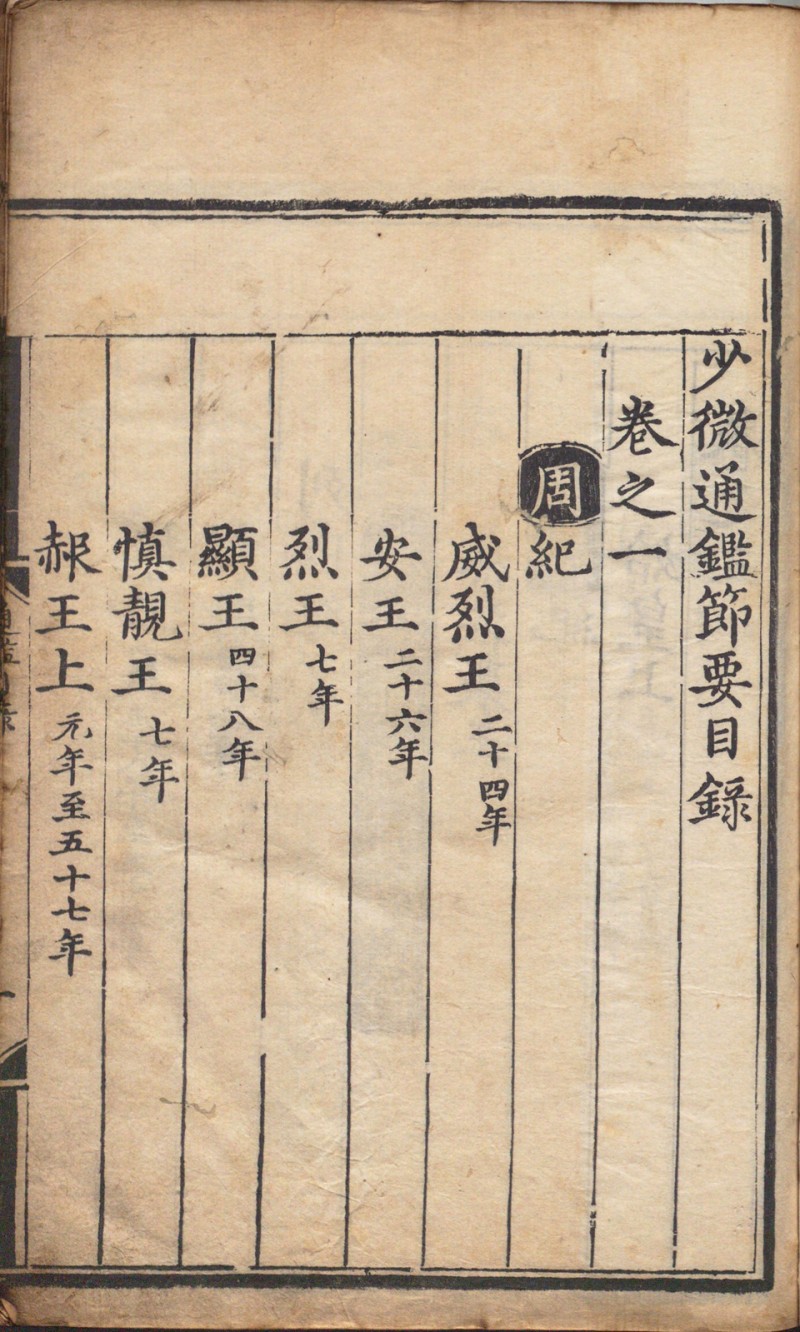 少微通鑑節要目錄
卷之一
周紀
威烈王二十四年
安王二十六年
烈王七年
顯王四十八年
慎靚王七年
赧王上元年至五十七年